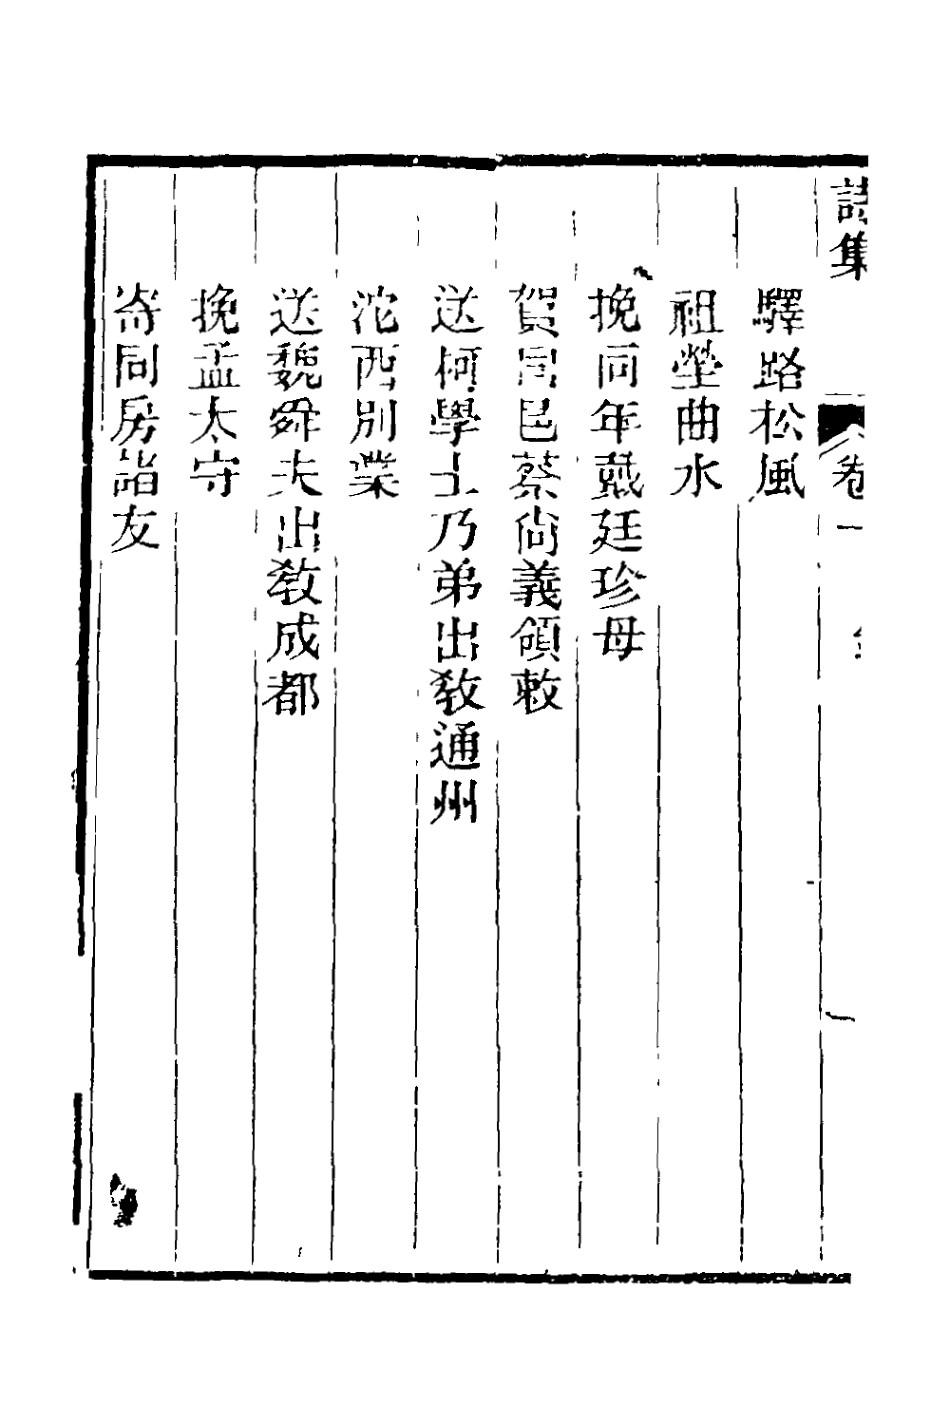 詩集 卷一
驛路松風
祖塋曲水
挽同年戴廷珍母
賀同邑蔡尚義領敕
送柯學士乃弟出教通州
沱西別業
送魏舜夫出教成都
挽孟太守
寄同房諸友